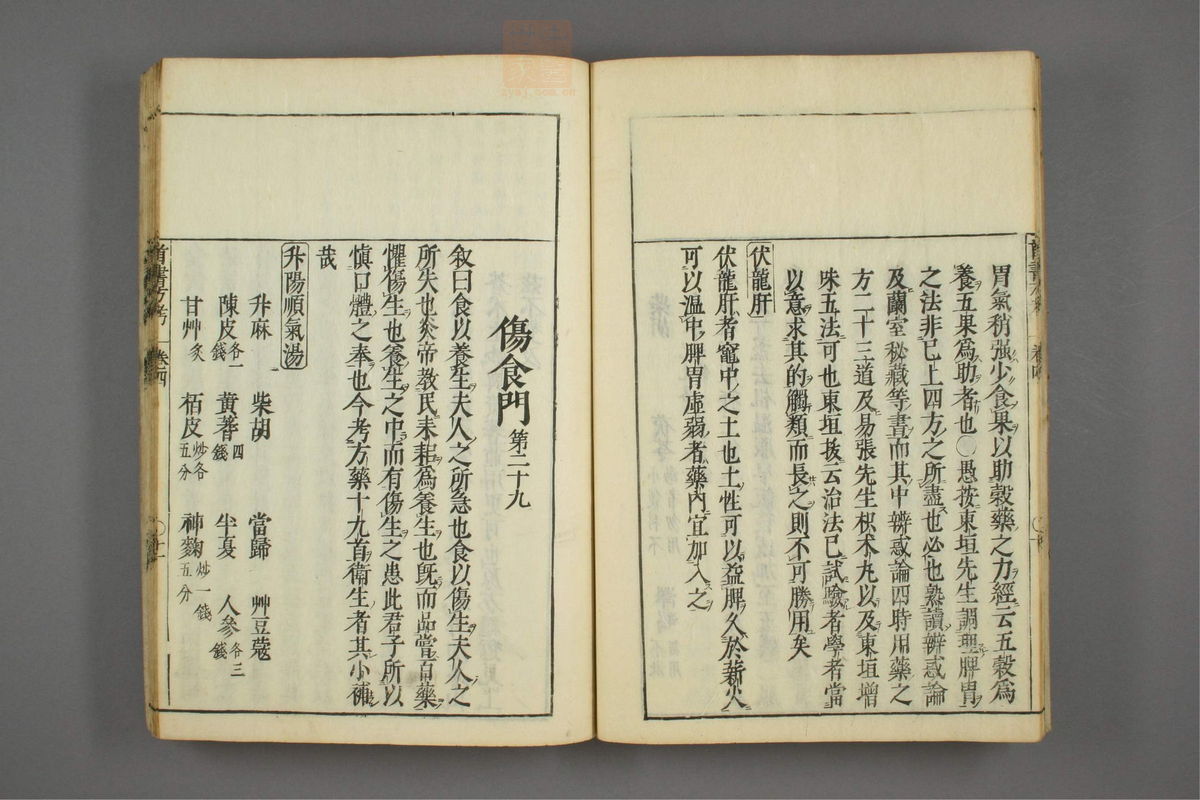 胃氣稍强少食果以助穀藥之力經云五穀爲
養五果爲助者也〇愚按東垣先生調理脾胃
之法非已上四方之所盡也必也熟讀辨惑論
及蘭室秘藏等書而其中辨惑論四時用藥之
方二十三道及易張先生枳朮丸以及東垣增
味五法可也東垣按云治法已試驗者學者當
以意求其的觸類而長之則不可勝用矣
伏龍肝
伏龍肝者竈中之土也土性可以益脾久於薪火
可以溫中脾胃虛弱者藥內宜加入之
傷食門 第二十九
叙曰食以養生夫人之所急也食以傷生夫人之
所失也炎帝教民耒耜爲養生也既而品嘗百藥
懼傷生也養生之中而有傷生之患此君子所以
愼口體之奉也今考方藥十九首衛生者其小補
哉
升陽順氣湯
升麻 柴胡 當歸 艸豆蔻
陳皮各一錢 黄蓍四錢 半夏 人參各三錢
甘艸炙 栢皮炒各五分 神麴炒一錢五分
卷四